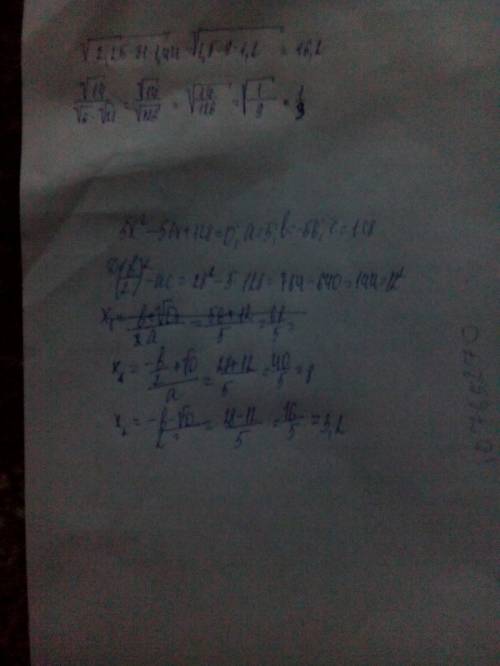 √2,25·81·1,44 = √1,5·9·1,2 = 16,2
√14/√6·√21 = √14/√126 = √14/126 = √1/9 = 1/3
5x² − 56x + 128 = 0; a = 5; b = −56; c = 128
(b/2)² − ac = 28² − 5·128 = 784 − 640 = 144 = 12²
x₁ = −b+√D/2a = 56+12/5 = 68/5 =
x₁ = −b/2+√D/a = 28+12/5 = 40/5 = 8
x₂ = −b−√D/2 = 28−12/5 = 16/5 = 3,2